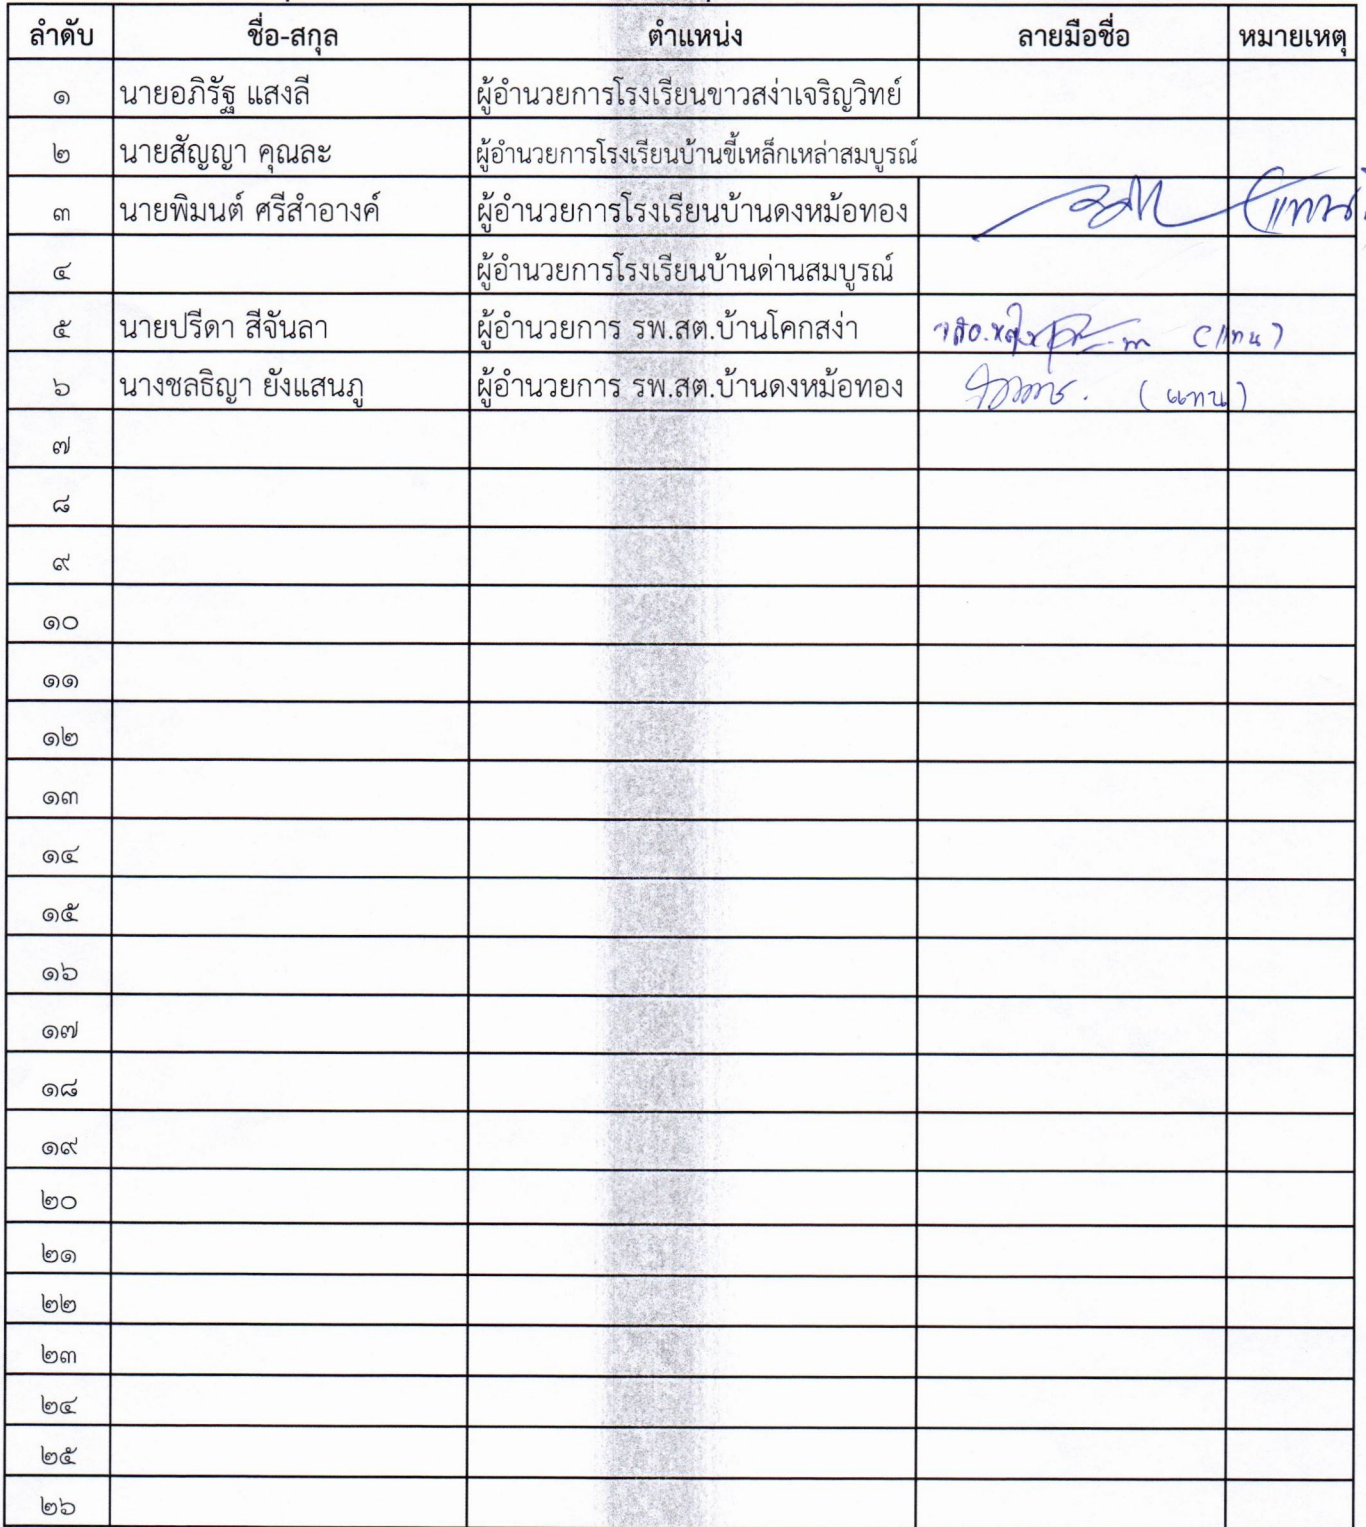 ลำดับ ชื่อ-สกุล ตำแหน่ง ลายมือชื่อ หมายเหตุ
๑ นายอภิรัฐ แสงลี ผู้อำนวยการโรงเรียนขาวสง่าเจริญวิทย์
๒ นายสัญญา คุณละ ผู้อำนวยการโรงเรียนบ้านขี้เหล็กเหล่าสมบูรณ์
๓ นายพิมนต์ ศรีสำอางค์ ผู้อำนวยการโรงเรียนบ้านดงหม้อทอง
๔ ผู้อำนวยการโรงเรียนบ้านด่านสมบูรณ์
๕ นายปรีดา สีจันลา ผู้อำนวยการ รพ.สต.บ้านโคกสง่า (แทน)
๖ นางชลธิญา ยังแสนภู ผู้อำนวยการ รพ.สต.บ้านดงหม้อทอง (แทน)
๗
๘
๙
๑๐
๑๑
๑๒
๑๓
๑๔
๑๕
๑๖
๑๗
๑๘
๑๙
๒๐
๒๑
๒๒
๒๓
๒๔
๒๕
๒๖